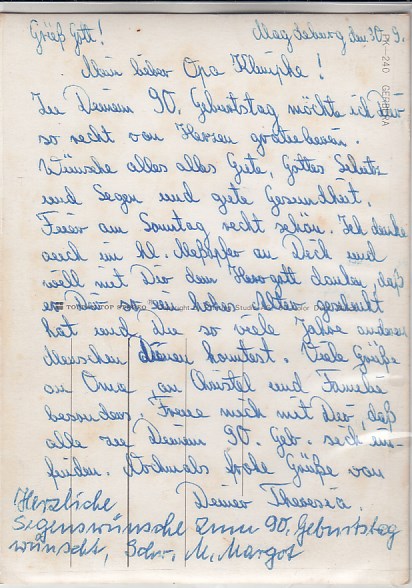 Grüß Gott! Magdeburg den 30. 9.
Mein lieber Opa Klimpke!
Zu Deinem 90. Geburtstag möchte ich Dir
so recht von Herzen gratulieren.
Wünsche alles alles Gute, Gottes Schutz
und Segen und gute Gesundheit.
Feier am Sonntag recht schön. Ich denke
auch im hl. Meßopfer an Dich und
will mit Dir dem Herrgott danken, daß
er Dir so ein hohes Alter geschenkt
hat und Du so viele Jahre anderen
Menschen dienen konntest. Viele Grüße
an Oma, an Christel und Familie
besonders. Freue mich mit Dir, daß
alle zu Deinem 90. Geb. sich ein-
finden. Nochmals frohe Grüße von
Deiner Theresia.
Herzliche
Segenswünsche zum 90. Geburtstag
wünscht, Schw. M. Margot
PK-240